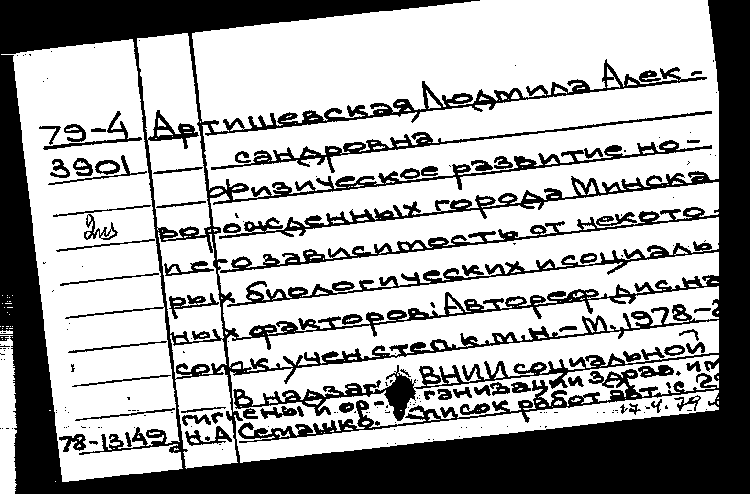 79-4 Артишевская, Людмила Алек-
3901 сандровна.
Физическое развитие но-
ворожденных города Минска
и его зависимость от некото-
рых биологических и социаль-
ных факторов: Автореф. дис. на
соиск. учен. степ. к.м.н. - М., 1978. -
В надзаг. ВНИИ социальной
гигиены и ор- ганизации здрав. им
78-13149 Н.А Семашко. Список работ авт.: с.
17.4.79